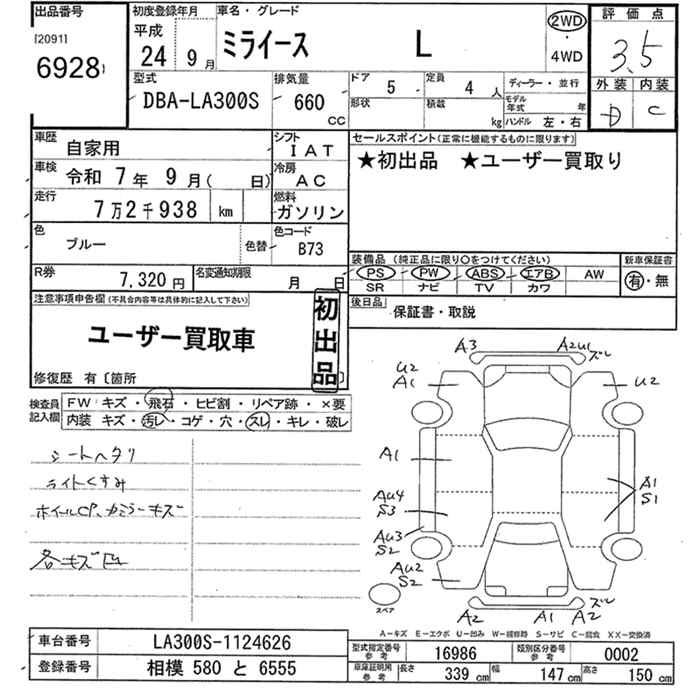 出品番号 初度登録年月 車名・グレード 評価点
[2091] 平成
6928 24 9月 ミライース L 2WD・4WD 3.5
外装 内装
D C
型式 排気量 ドア 5 定員 4人 ディーラー・並行
DBA-LA300S 660 CC 形状 積載 kg モデル年式 年
ハンドル 左・右
車歴 自家用 シフト IAT セールスポイント(正常に機能するものに限ります)
車検 令和 7年 9月( 日) 冷房 AC ★初出品 ★ユーザー買取り
走行 7万2千938 km 燃料 ガソリン
色 ブルー 色替 色コード B73
装備品 (純正品に限り○をつけてください) 新車保証書
PS PW ABS エアB AW 有・無
SR ナビ TV カワ
R券 7,320円 名変通知期限 月 日
後日品 保証書・取説
注意事項申告欄(不具合内容等は具体的に記入して下さい)
ユーザー買取車 初出品
修復歴 有〔箇所 〕
検査員記入欄 FW キズ・飛石・ヒビ割・リペア跡・×要
内装 キズ・汚レ・コゲ・穴・スレ・キレ・破レ
シートヘタリ
ライトくすみ
ホイルCP、カミラーキズ
各キズ凹
A3 A2U1 ズレ
U2 A1 U2
A1
AU4 S3 A1 S1
AU3 S2
AU2 S2
スペア A2 A1 A2 ズレ
A-キズ E-エクボ U-凹み W-補修跡 S-サビ C-腐食 XX-交換済
車台番号 LA300S-1124626
登録番号 相模 580 と 6555
型式指定番号 参考 16986 類別区分番号 参考 0002
車庫証明用 参考 長さ 339cm 幅 147cm 高さ 150cm